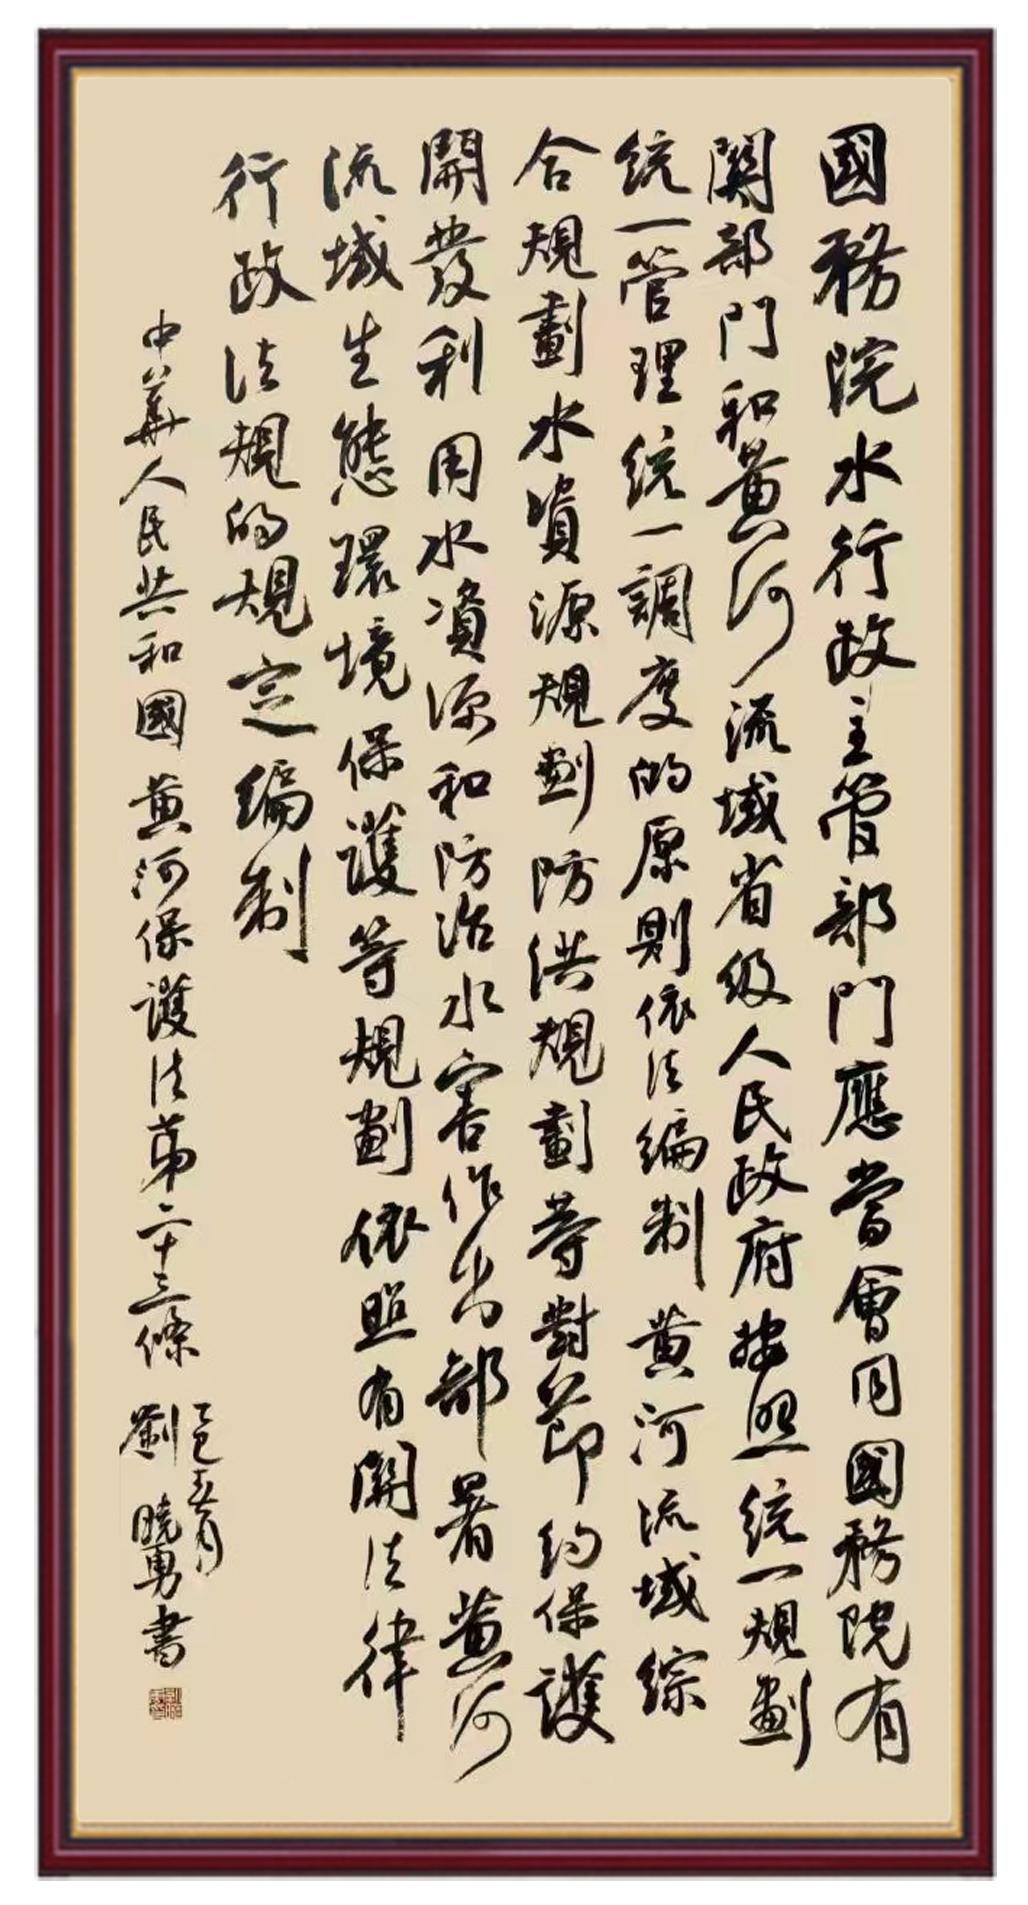 國務院水行政主管部門應當會同國務院有
關部門和黃河流域省級人民政府按照統一規劃
統一管理統一調度的原則依法編制黃河流域綜
合規劃水資源規劃防洪規劃等對節約保護
開發利用水資源和防治水害作出部署黃河
流域生態環境保護等規劃依照有關法律
行政法規的規定編制
中華人民共和國黃河保護法第二十三條
乙巳五月
劉曉勇書